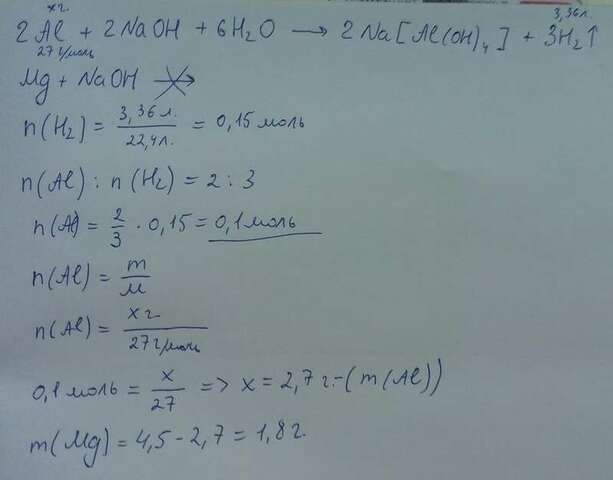 x г.
3,36 л.
2Al + 2NaOH + 6H₂O → 2Na[Al(OH)₄] + 3H₂↑
27 г/моль
Mg + NaOH ↛
n(H₂) = 3,36 л. / 22,4 л. = 0,15 моль
n(Al) : n(H₂) = 2 : 3
n(Al) = 2/3 · 0,15 = 0,1 моль
n(Al) = m/M
n(Al) = x г. / 27 г/моль
0,1 моль = x/27 => x = 2,7 г. - (m(Al))
m(Mg) = 4,5 - 2,7 = 1,8 г.